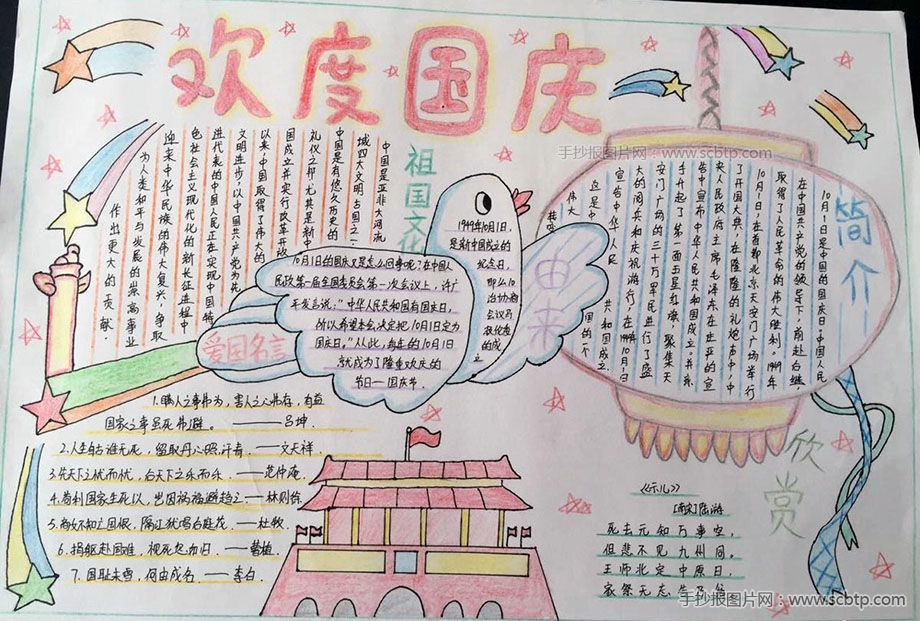 欢度国庆
手抄报图片网:www.scbtp.com
祖国文化
中国是亚非大河流
域四大文明古国之一
中国是有悠久历史的
礼仪之邦,尤其是新中
国成立并实行改革开放
以来,中国取得了伟大的
文明进步,以中国共产党为先
进代表的中国人民正在实现中国特
色社会主义现代化的新长征进程中
迎来中华民族的伟大复兴,争取
为人类和平与发展的崇高事业
作出更大的贡献.
简介
10月1日是中国的国庆日。中国人民
在中国共产党的领导下,前赴后继,
取得了人民革命的伟大胜利。1949年
10月1日,在首都北京天安门广场举行
了开国大典,在隆隆的礼炮声中,中
央人民政府主席毛泽东在庄严的宣
告中宣布中华人民共和国成立。并亲
手升起了第一面五星红旗,聚集天
安门广场的三十万军民进行了盛
大的阅兵和庆祝游行,在1949年10月1日
宣告中华人民 共和国成立
这是中 国的一个
伟大
由来
1949年10月1日,
是新中国成立的
纪念日,
10月1日的国庆又是怎么回事呢?在中国人
民政第一届全国委员会第一次会议上,许广
平发言说:“中华人民共和国有国庆日,
所以希望本会决定把10月1日定为
国庆日。”从此,每年的10月1日
就成为了隆重欢庆的
节日——国庆节.
爱国名言
1.瞒人之事弗为,害人之心弗存,有益
国家之事虽死弗避。——吕坤.
2.人生自古谁无死,留取丹心照汗青.——文天祥.
3.先天下之忧而忧,后天下之乐而乐.——范仲淹.
4.苟利国家生死以,岂因祸福避趋之——林则徐.
5.商女不知亡国恨,隔江犹唱后庭花.——杜牧.
6.捐躯赴国难,视死忽如归.——曹植.
7.国耻未雪,何由成名.——李白.
欣赏
《示儿》
[南宋]陆游
死去元知万事空,
但悲不见九州同。
王师北定中原日,
家祭无忘告乃翁
手抄报图片网:www.scbtp.com